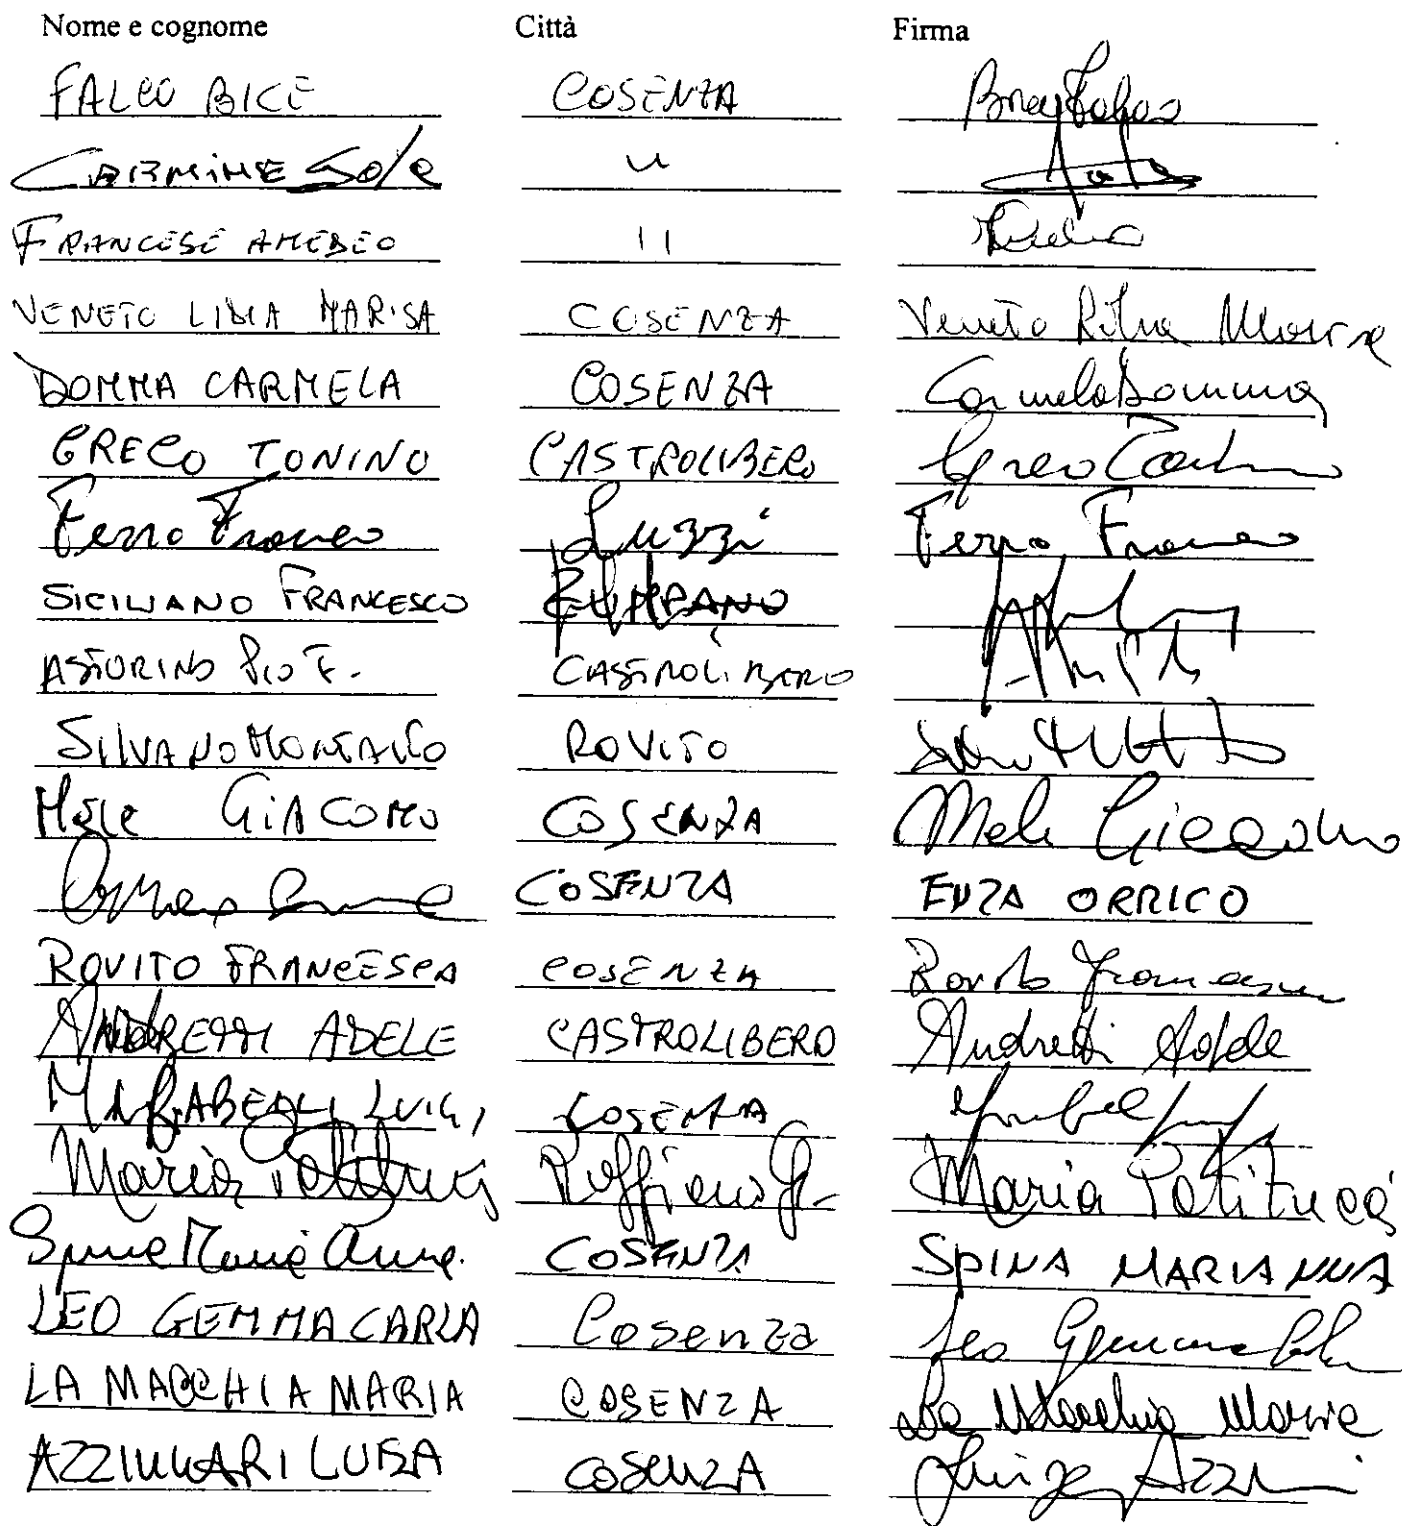 Nome e cognome Città Firma
FALCO BICE COSENZA
CARMINE Sole "
FRANCESE AMEDEO "
VENETO LIDIA MARISA COSENZA Veneto Lidia Marisa
DOMMA CARMELA COSENZA Carmela Domma
GRECO TONINO CASTROLIBERO Greco Tonino
Ferro Franco Luzzi Ferro Franco
SICILIANO FRANCESCO ZUMPANO
ASTORINO Pio F. CASTROLIBERO
SILVANO MONTALTO ROVITO
Mele GIACOMO COSENZA Mele Giacomo
COSENZA ENZA ORRICO
ROVITO FRANCESCA COSENZA Rovito Francesca
ANDREOTTI ADELE CASTROLIBERO Adele
MIRABELLI LUIGI COSENZA
Maria Patitucci Maria Patitucci
Spina Marianna COSENZA SPINA MARIANNA
LEO GEMMA CARLA Cosenza Leo Gemma Carla
LA MACCHIA MARIA COSENZA La Macchia Maria
LUISA COSENZA